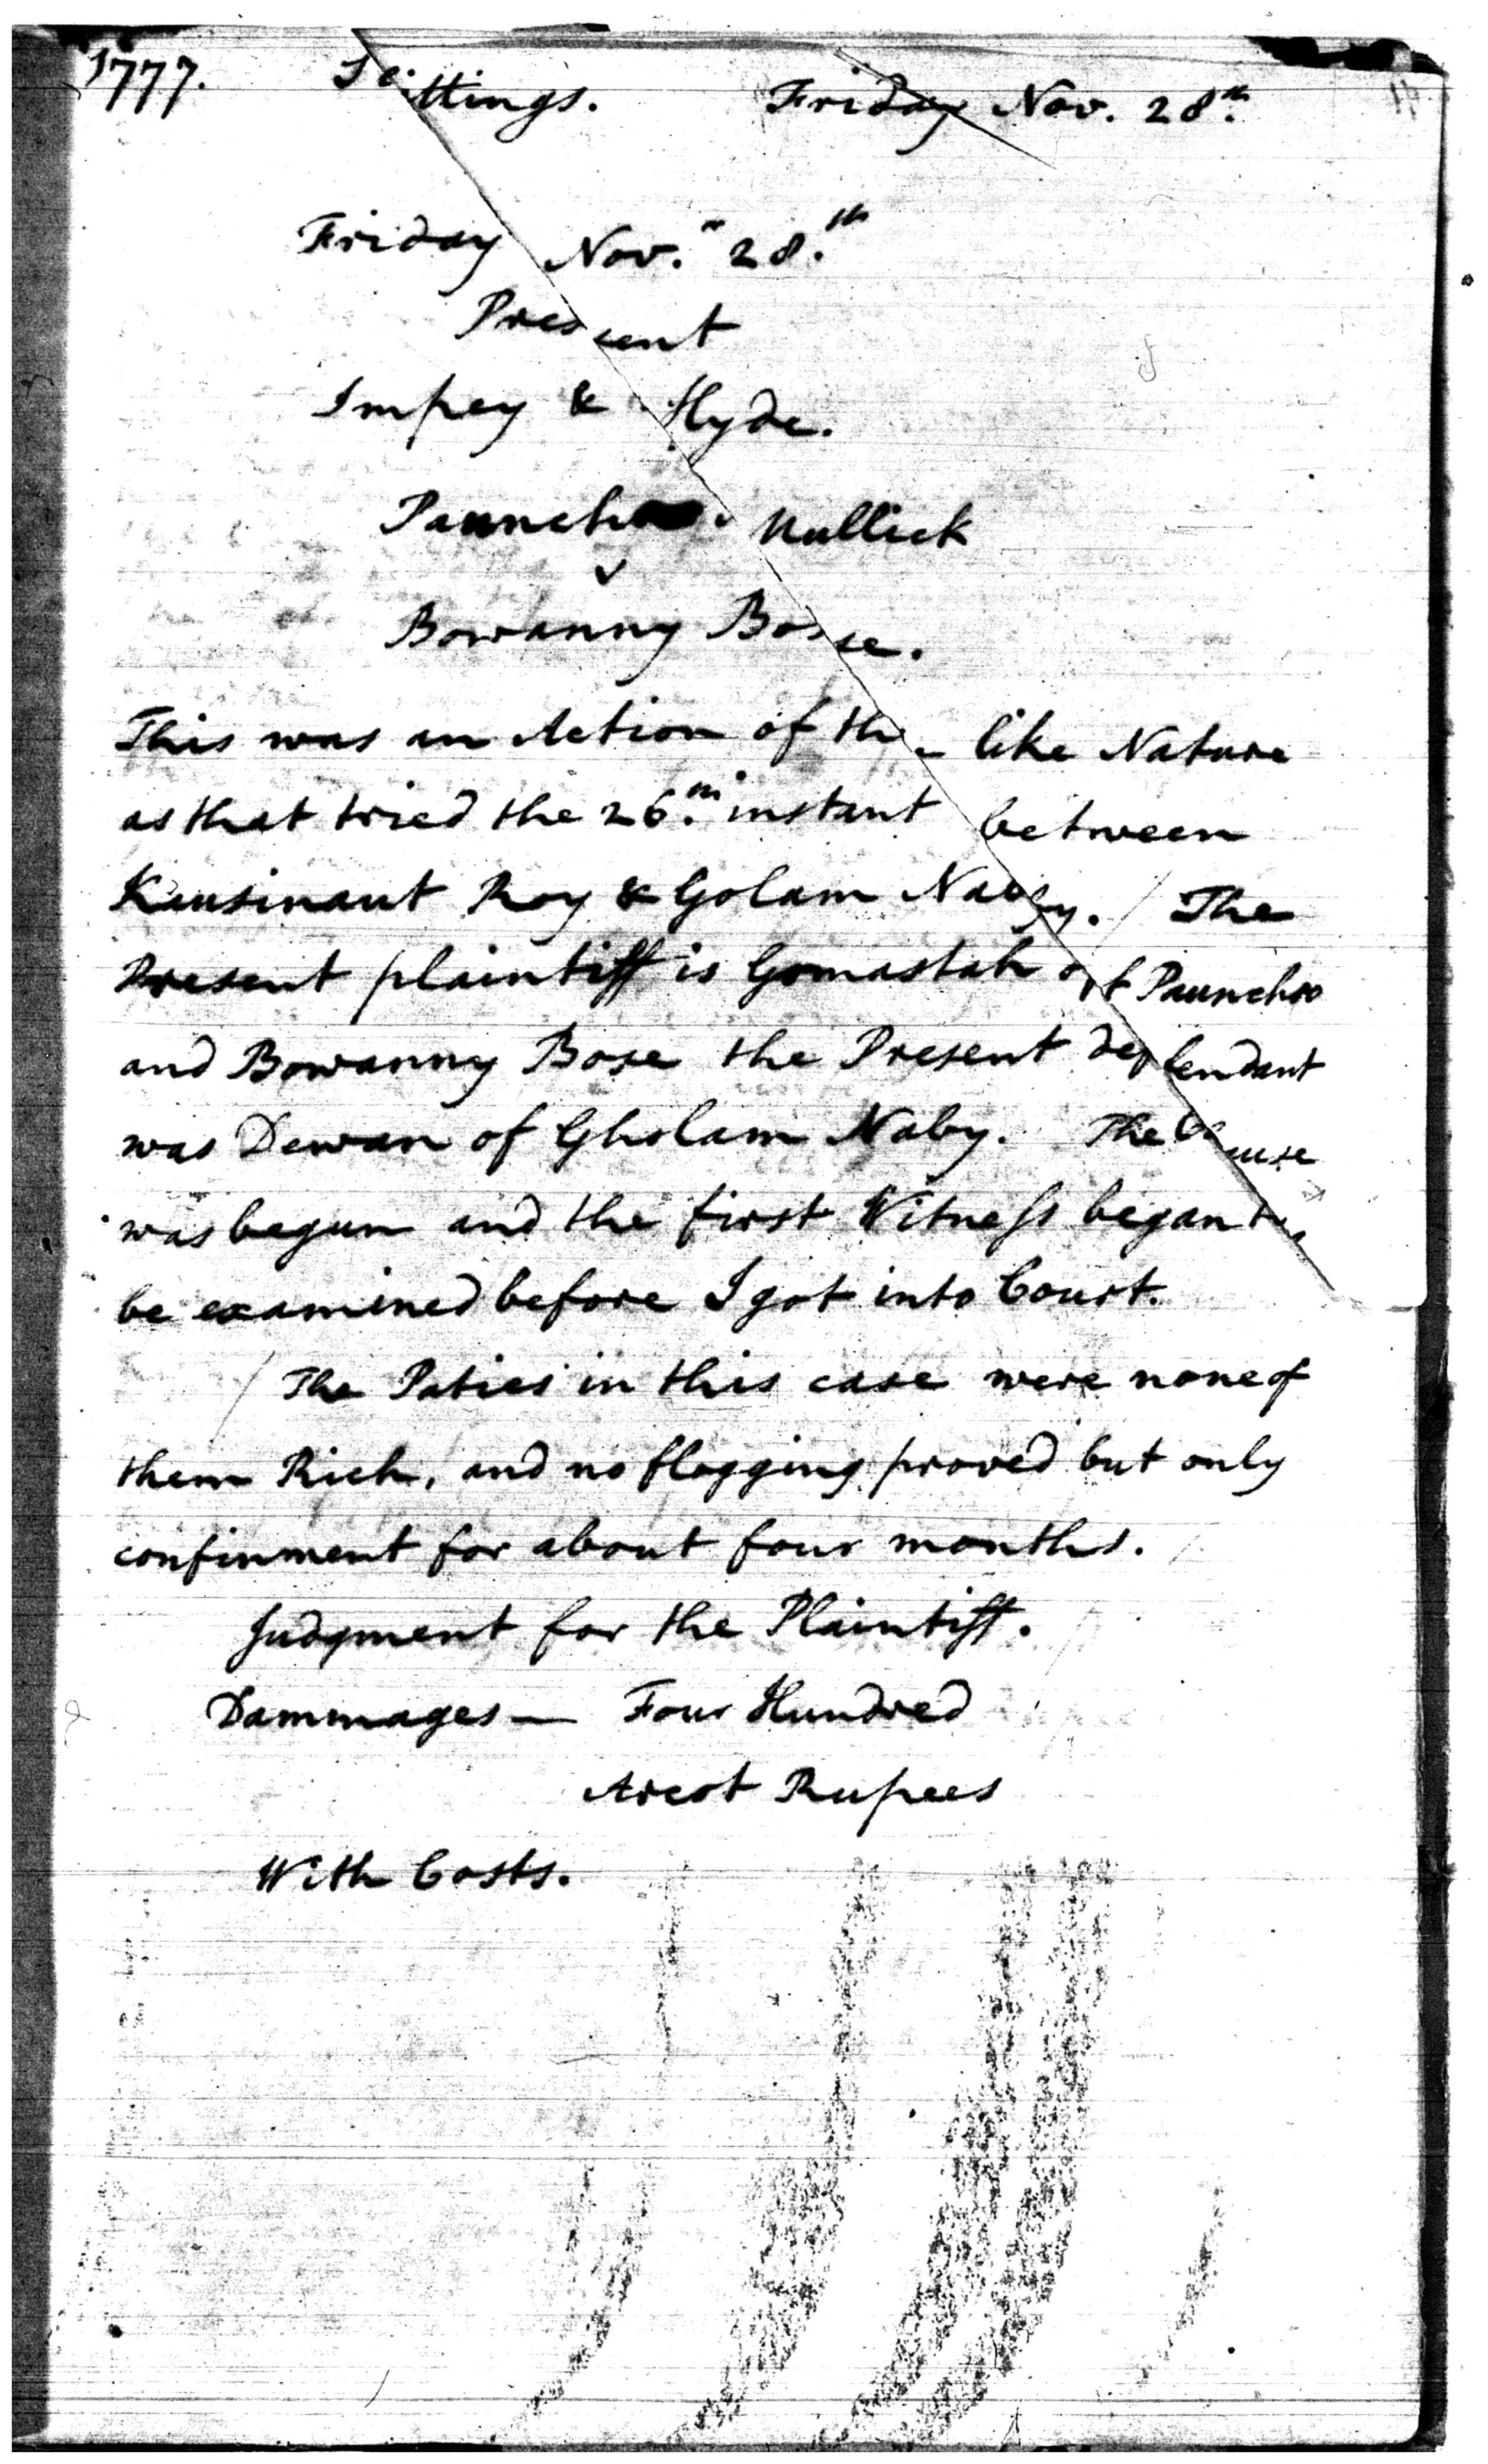 1777. Sittings. Friday Nov. 28th.
Friday Nov. 28.th
Present
Impey & Hyde.
Pauncho Mullick
v
Bowanny Bose.
This was an Action of the like Nature
as that tried the 26.th instant between
Kausinaut Roy & Golam Naby. / The
Present plaintiff is Gomastah of Pauncho
and Bowanny Bose the Present defendant
was Dewan of Gholam Naby. The Cause
was begun and the first Witness began to
be examined before I got into Court.
/ The Paties in this case were none of
them Rich, and no flogging proved but only
confinment for about four months. /
Judgment for the Plaintiff.
Dammages — Four Hundred
Arcot Rupees
With Costs.